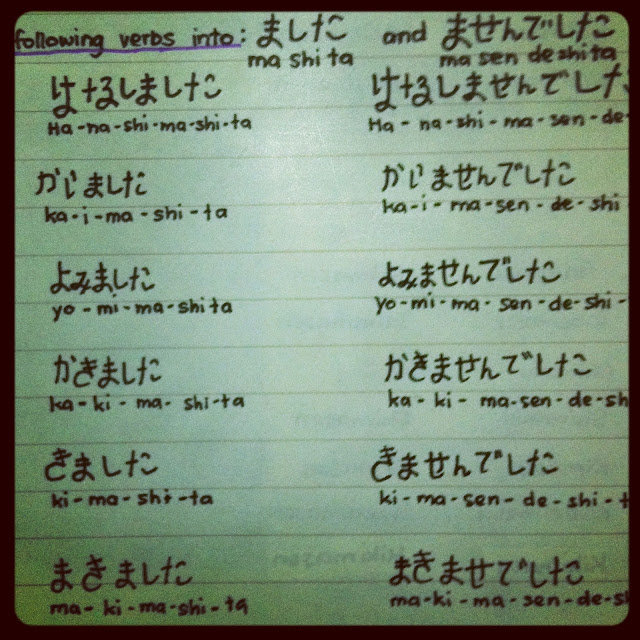 following verbs into: ました and ませんでした
ma shi ta ma sen deshita
はなしました はなしませんでした
Ha-na-shi-ma-shi-ta Ha-na-shi-ma-sen-de-
かいました かいませんでした
ka-i-ma-shi-ta ka-i-ma-sen-de-shi
よみました よみませんでした
yo-mi-ma-shita yo-mi-ma-sen-de-shi-
かきました かきませんでした
ka-ki-ma-shi-ta ka-ki-ma-sen-de-sh
きました きませんでした
ki-ma-shi-ta ki-ma-sen-de-shi-t
まきました まきませでした
ma-ki-ma-shi-ta ma-ki-ma-sen-de-s